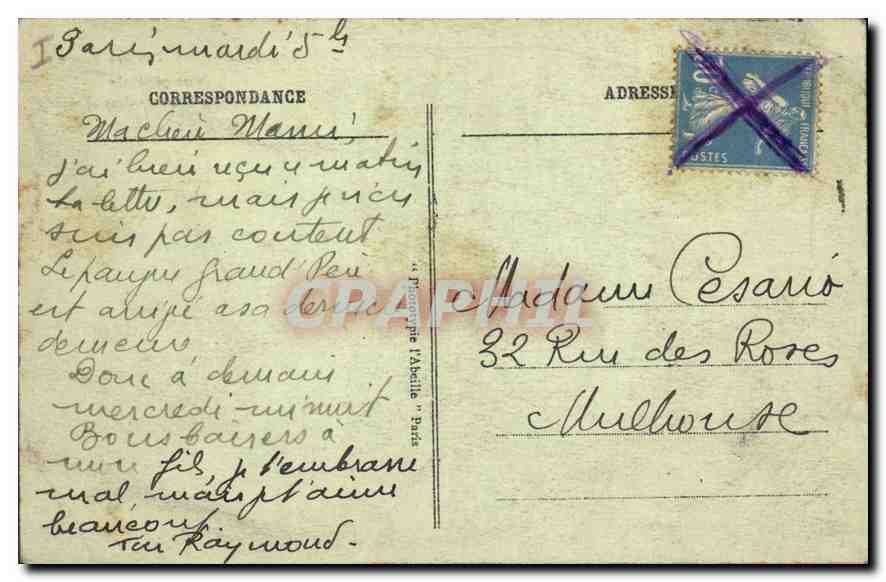 I Paris, mardi 5 h
CORRESPONDANCE
ADRESSE
Ma chérie Mami,
j'ai bien reçu ce matin
ta lettre, mais je n'en
suis pas content
Le pauvre grand Père
est arrivé a sa dernière
demeure
Donc à demain
mercredi minuit
Bons baisers à
mon fils, je t'embrasse
mal mais je t'aime
beaucoup.
Ton Raymond.
Madame Cesario
32 Rue des Roses
Mulhouse
"Phototypie l'Abeille" Paris
POSTES
CPAPHIL